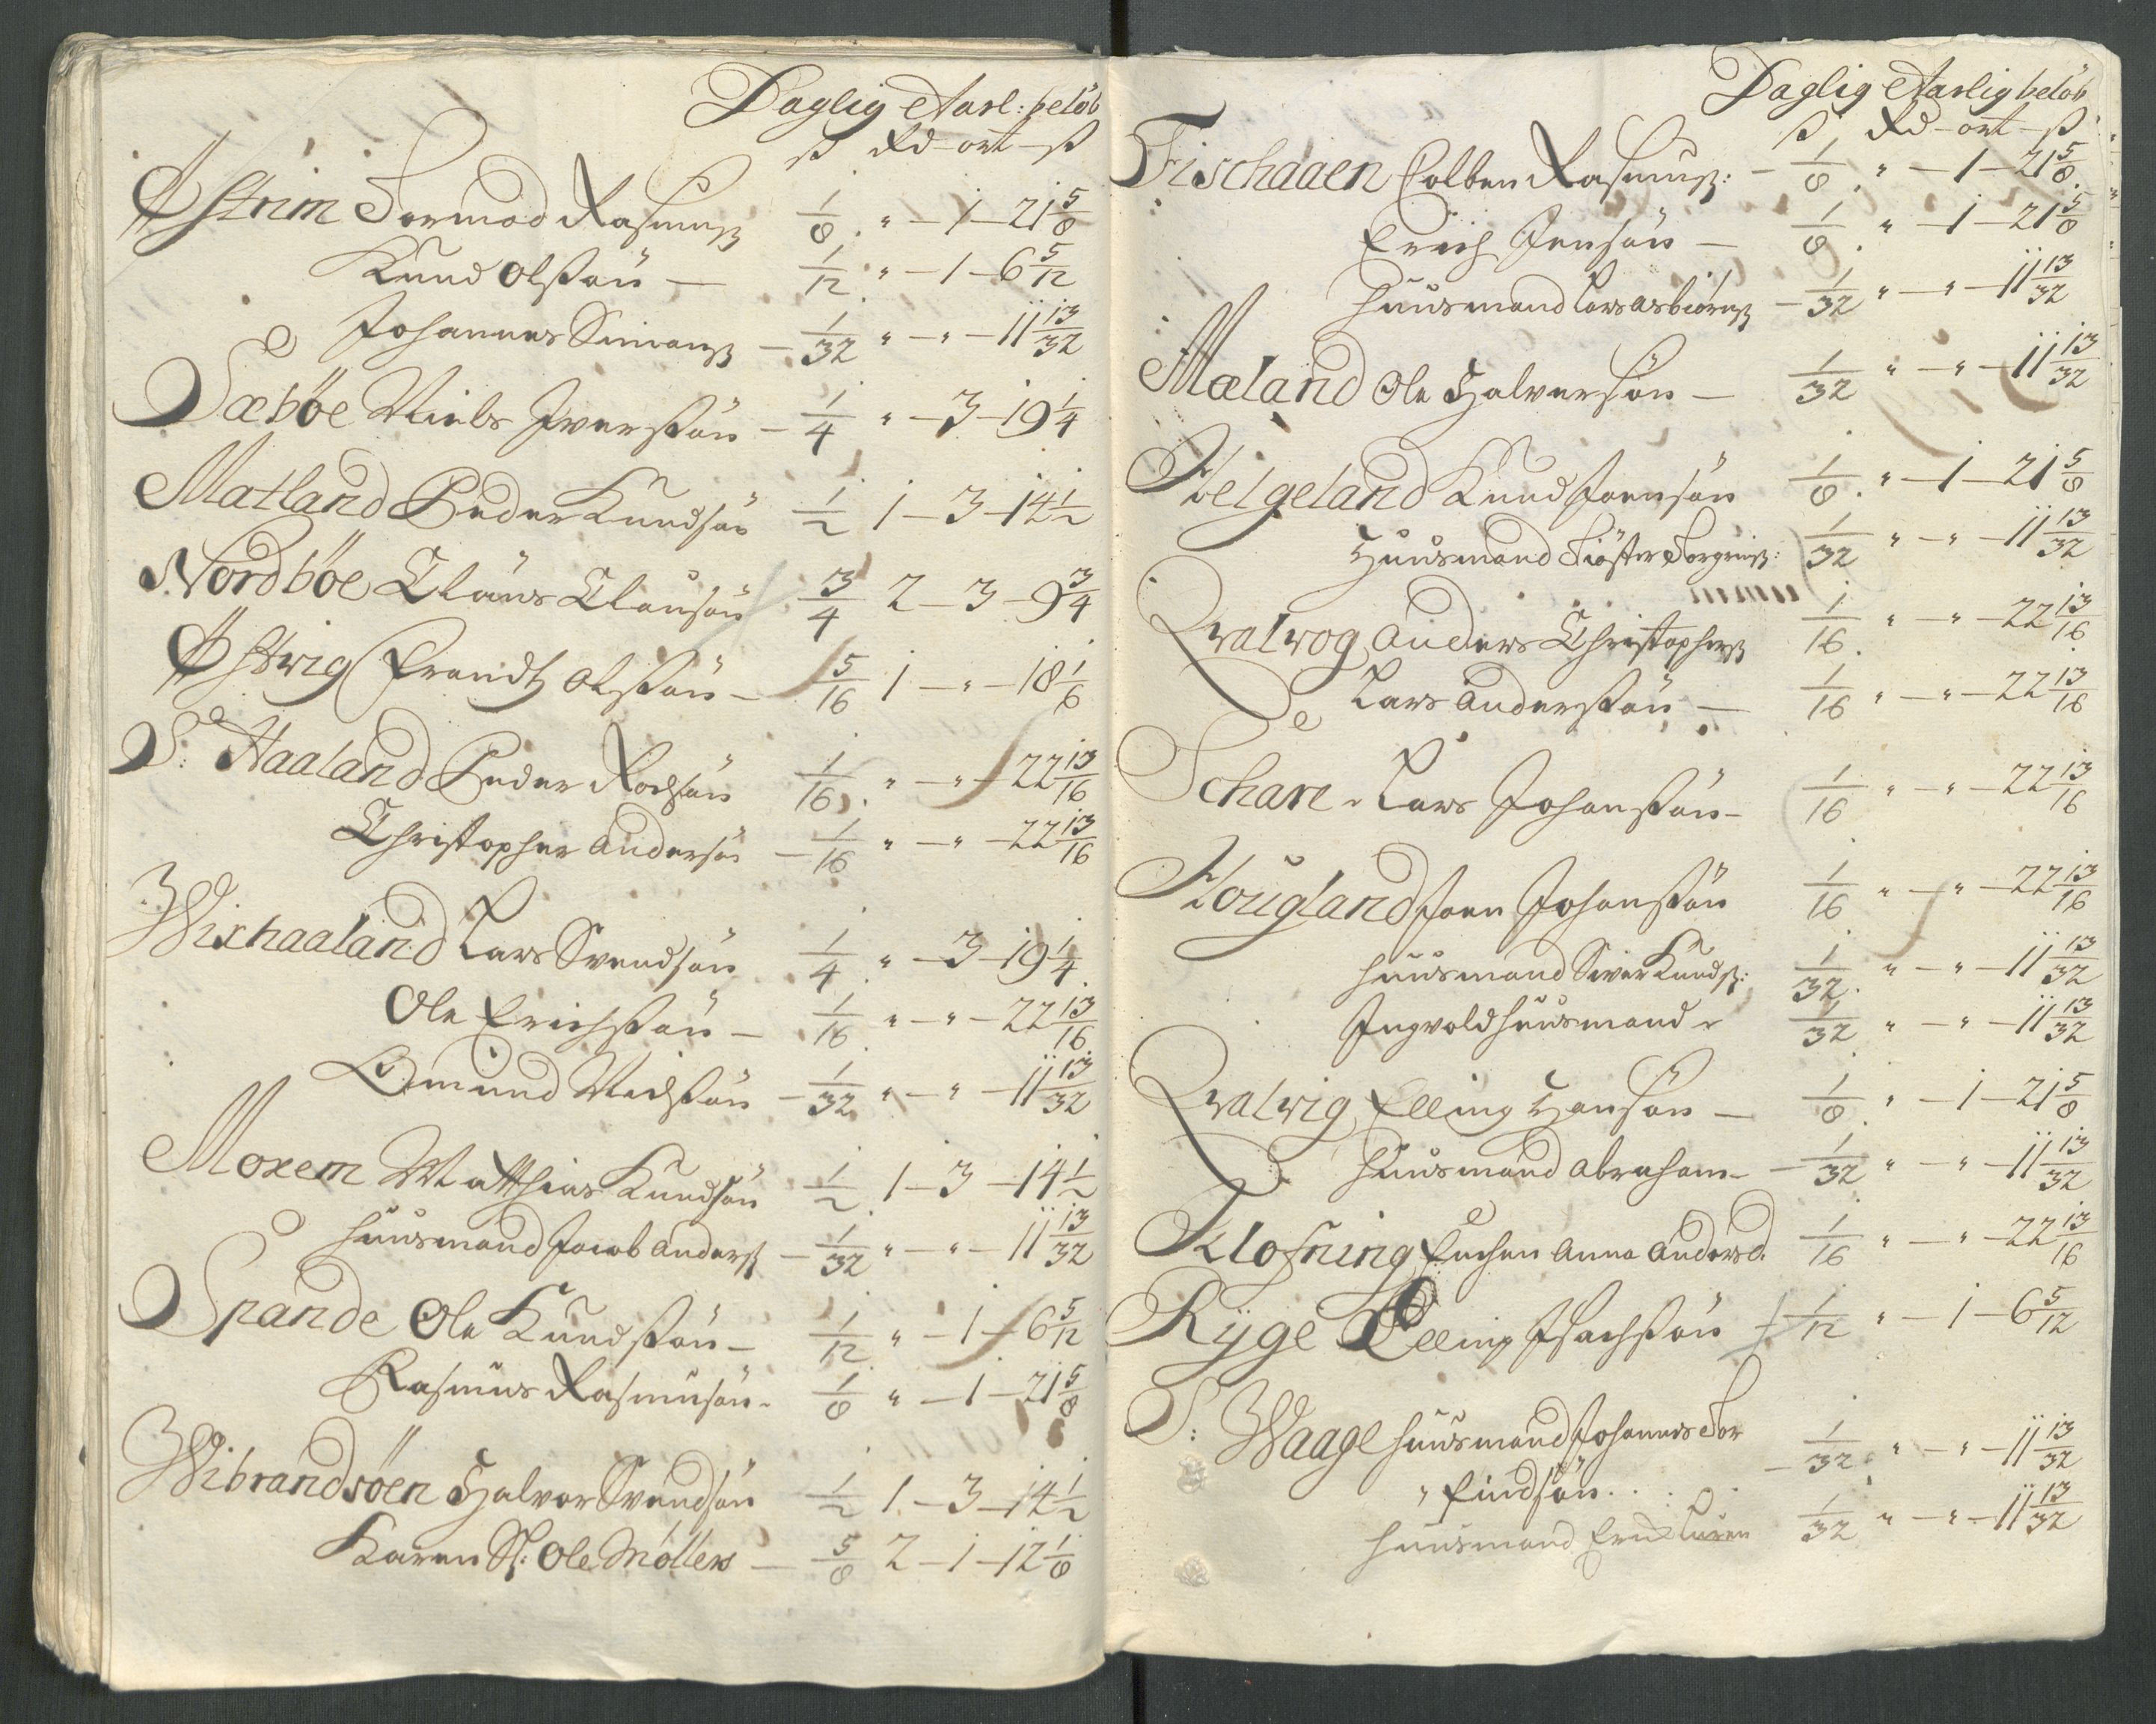 Daglig Aarl: belöb
ß Rd - ort - ß
Astrim Tormod Rasmusß 1/8 " - 1 - 21 5/8
Knud Olssön - 1/12 " - 1 - 6 5/12
Johannes Simonß - 1/32 " - " - 11 13/32
Sæböe Niels Iverssön - 1/4 " - 3 - 19 1/4
Matland Peder Knudsön 1/2 1 - 3 - 14 1/2
Nordböe Claus Clausön 3/4 2 - 3 - 9 3/4
Astwig Frandtz Olssön - 5/16 1 - " - 18 1/6
S: Haaland Peder Rochsön 1/16 " - " - 22 13/16
Christopher Andersön - 1/16 " - " - 22 13/16
Wixhaaland Lars Svendsön 1/4 " - 3 - 19 1/4
Ole Erichssön - 1/16 " - " - 22 13/16
Omund Nielssön - 1/32 " - " - 11 13/32
Moxem Matthias Knudsön 1/2 1 - 3 - 14 1/2
huusmand Jacob Andersß - 1/32 " - " - 11 13/32
Spande Ole Knudssön - 1/12 " - 1 - 6 5/12
Rasmus Rasmusön - 1/8 " - 1 - 21 5/8
Wibrandsöen Halvor Svendsön 1/2 1 - 3 - 14 1/2
Karen Sl: Ole Möllers - 5/8 2 - 1 - 12 1/8
Daglig Aarlig belöb
ß Rd - ort - ß
Fischaaen Colben Rasmusß: - 1/8 " - 1 - 21 5/8
Erich Jensön - 1/8 " - 1 - 21 5/8
huusmand Lars Asbiörnß - 1/32 " - " - 11 13/32
Mæland Ole Halversön - 1/32 " - " - 11 13/32
Helgeland Knud Joensön 1/8 " - 1 - 21 5/8
Huusmand Tiöster Torgerß: 1/32 " - " - 11 13/32
Qvalvog Anders Christophersß 1/16 " - " - 22 13/16
Lars Anderssön - 1/16 " - " - 22 13/16
Schare Lars Johanssön - 1/16 " - " - 22 13/16
Hougland Joen Johanssön 1/16 " - " - 22 13/16
huusmand Siver Knudß: 1/32 " - " - 11 13/32
Ingvold huusmand 1/32 " - " - 11 13/32
Qvalvig Elling Hansön - 1/8 " - 1 - 21 5/8
huusmand Abraham - 1/32 " - " - 11 13/32
Klofning Enchen Anna Andersd. 1/16 " - " - 22 13/16
Ryge Elling Isachssön 1/12 " - 1 - 6 5/12
S: Waage huusmand Johannes Tor
" findsön . . 1/32 " - " - 11 13/32
huusmand Erik 1/32 " - " - 11 13/32